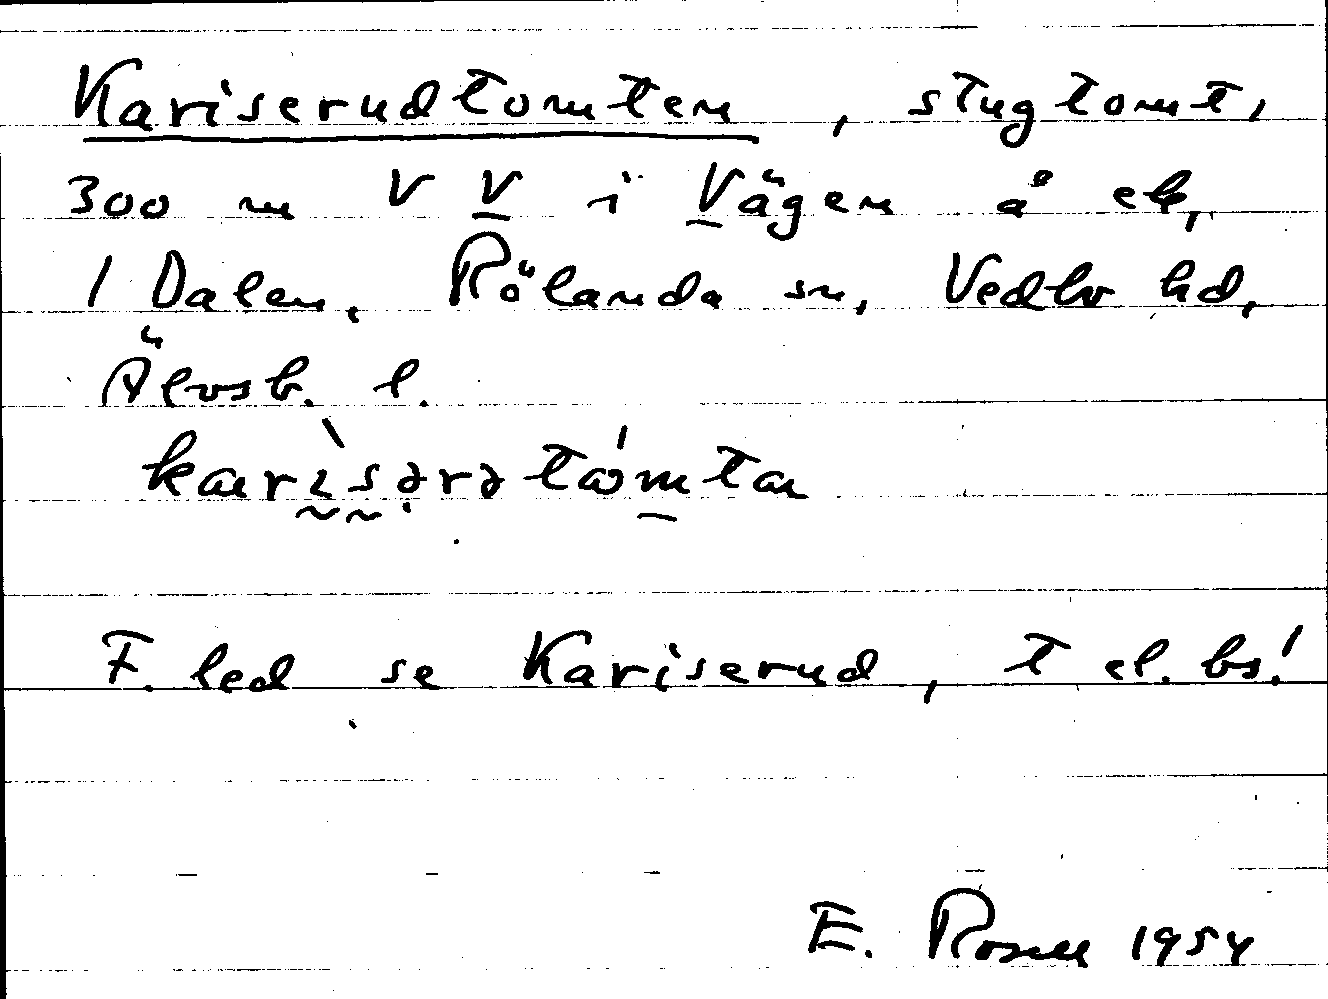 Kariserudtomten, stugtomt,
300 m V V i Vägen å ek,
1 Dalen, Rölanda sn, Vedbo hd,
Älvsb. l.
F. led se Kariserud, t el. bs!
E. Rosell 1954